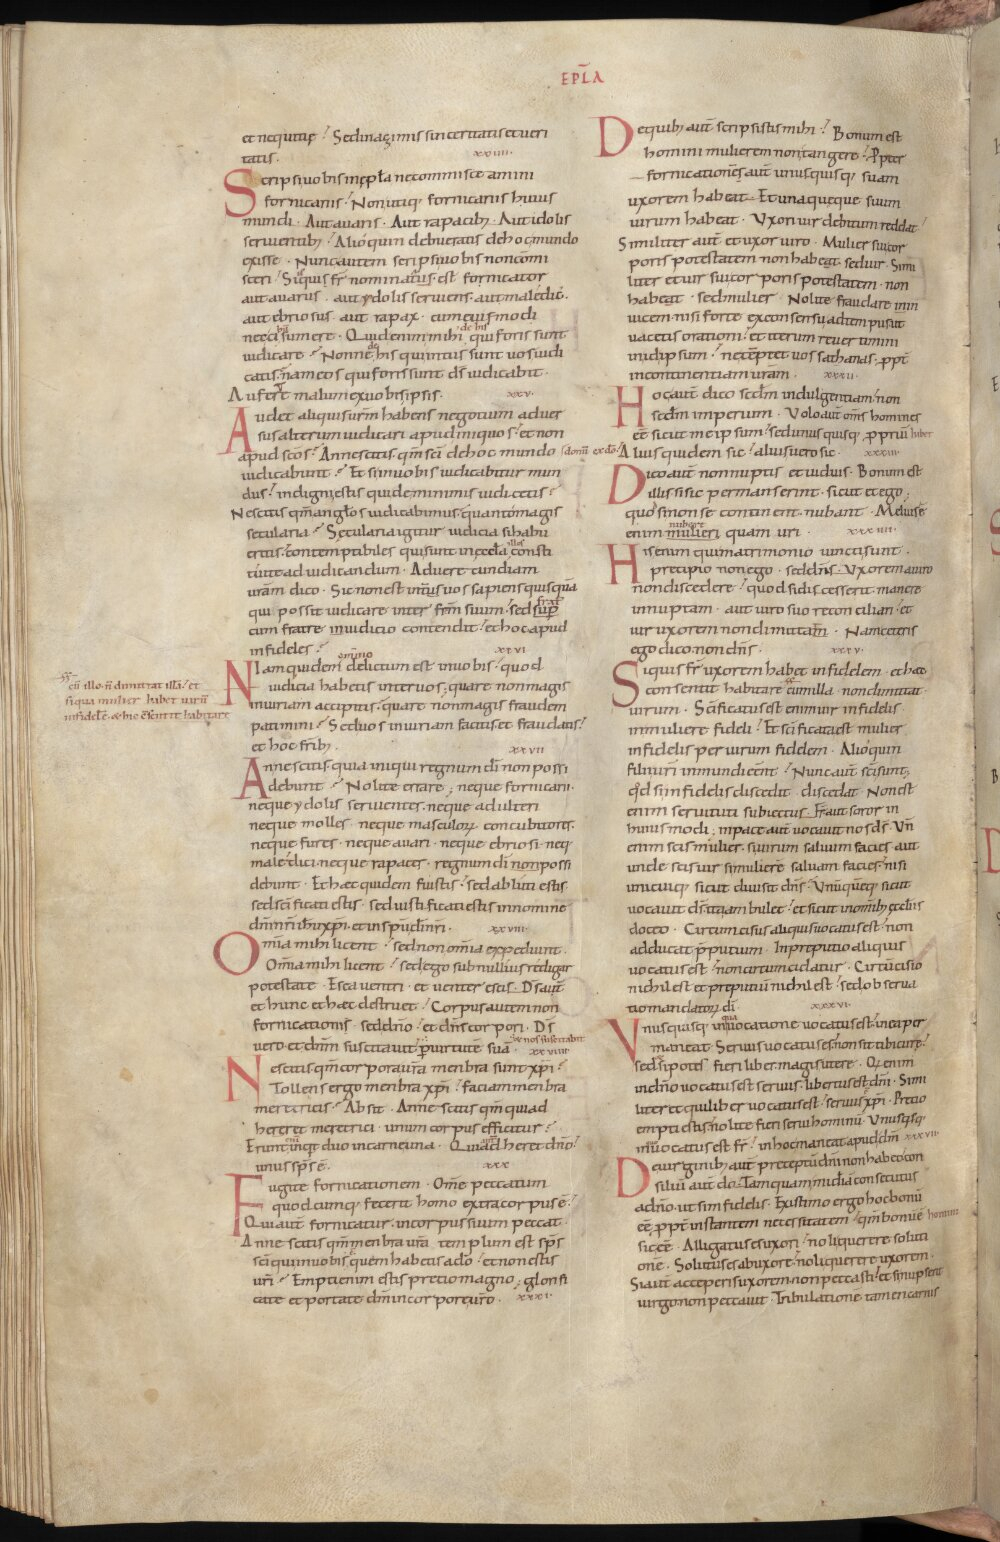 EPLA
et nequitię. Sed in azimis sinceritatis et veri
tatis. xxiiii.
Scripsi uobis in epła ne commisceamini
fornicariis. Non utiq; fornicariis huius
mundi. Aut auaris. Aut rapacib; Aut idolis
seruientib; Alioquin debueratis de hoc mundo
exisse. Nunc autem scripsi uobis non com
sceri. Si quis fr nominatus est fornicator
aut auarus. aut ydolis seruiens. aut maledic.
aut ebriosus. aut rapax. cum eiusmodi
nec cibum sumere. Quid enim mihi de his qui foris sunt
iudicare. Nonne de his qui intus sunt uos iudi
catis. nam eos qui foris sunt ds iudicabit.
Auferte malum ex uobis ipsis. xxv.
Audet aliquis urm habens negotium aduer
sus alterum iudicari apud iniquos. et non
apud scos. An nescitis qm sci de hoc mundo
iudicabunt. Et si in uobis iudicabitur mun
dus. indigni estis qui de minimis iudicetis.
Nescitis qm anglos iudicabimus. quanto magis
secularia. Secularia igitur iudicia si habu
eritis. contemptibiles qui sunt in eccla illos consti
tuite ad iudicandum. Ad uerecundiam
uram dico. Sic non est int uos sapiens quisqua
qui possit iudicare inter frem suum. sed frat
cum fratre in iudicio contendit. et hoc apud
infideles. xxvi.
Nam quidem omnino delictum est in uobis. quod
iudicia habetis inter uos. quare non magis
iniuriam accipitis. quare non magis fraudem
patimini. Sed uos iniuriam facitis. et fraudatis.
et hoc frib; xxvii
An nescitis quia iniqui regnum di non possi
debunt. Nolite errare; neque fornicari.
neque ydolis seruientes. neque adulteri
neque molles. neque masculor concubitores.
neque fures. neque auari. neque ebriosi. neq;
maledici. neque rapaces. regnum di non possi
debunt. Et haec quidem fuistis. sed abluti estis
sed scificati estis. sed iustificati estis in nomine
dni nri ihu xpi. et in spu di nri. xxviii.
Omia mihi licent. sed non omia expediunt.
Omia mihi licent. sed ego sub nullius redigar
potestate. Esca uentri. et uenter escis. Ds aut
et hunc et haec destruet. Corpus autem non
fornicationis. sed dno. et dns corpori. Ds
uero et dnm suscitauit. et nos suscitabit p uirtute sua xxviiii.
Nescitis qm corpora ura menbra sunt xpi.
Tollens ergo menbra xpi. faciam menbra
meretricis. Absit. An nescitis qm qui ad
heret meretrici. unum corpus efficitur.
Erunt enim inqt duo in carne una. Qui aut adheret dno.
unus sps e. xxx
Fugite fornicationem. Ome peccatum
quodcumq; fecerit homo extra corpus e.
Qui aut fornicatur. in corpus suum peccat.
An nescitis qm menbra ura templum est sps
sci qui in uobis. quem habetis a do. et non estis
uri. Empti enim estis pretio magno; glorifi
cate et portate dm in corpore uro. xxxi.
cu illo. n dimittat illa. et
si qua mulier habet uiru
infidele. & hic csentit habitare
De quib; aut scripsistis mihi. Bonum est
homini mulierem non tangere. Ppter
fornicationes aut unusquisq; suam
uxorem habeat. Et unaqueque suum
uirum habeat. Uxori uir debitum reddat.
Similiter aut et uxor uiro. Mulier sui cor
poris potestatem non habeat. sed uir. Simi
liter et uir sui corporis potestatem non
habeat. sed mulier. Nolite fraudare inui
uicem. nisi forte ex consensu ad tempus ut
uacetis orationi. et iterum reuertimini
in id ipsum. ne temptet uos sathanas. ppt
incontinentiam uram. xxxii.
Hoc aut dico scdm indulgentiam. non
scdm imperium. Uolo aut oms homines
ee sicut me ipsum. sed unusquisq; ppriu habet
donu ex do. Alius quidem sic. alius uero sic. xxxiii.
Dico aut non nuptis et uiduis. Bonum est
illis si sic permanserint. sicut et ego;
quod si non se continent. nubant. Melius e
enim nubere quam uri. xxxiiii.
His enim qui matrimonio iuncti sunt.
precipio non ego. sed dns. Uxorem a uiro
non discedere. quod si discesserit. manere
innuptam. aut uiro suo reconciliari. et
uir uxorem non dimittat. Nam ceteris
ego dico. non dns. xxxv.
Si quis fr uxorem habet infidelem. et haec
consentit habitare cum illa. non dimittat
uirum. Scificatus est enim uir infidelis
in muliere fideli. Et scificata est mulier
infidelis per uirum fidelem. Alioquin
filii uri inmundi eent. Nunc aut sci sunt;
qd si infidelis discedit. discedat. Non est
enim seruituti subiectus. Fr aut soror in
huiusmodi; in pace aut uocauit nos ds. Un
enim scis mulier. si uirum saluum facies. aut
unde scis uir. si muliere saluam facies. nisi
unicuiq; sicut diuisit dns. Unuquęq; sicut
uocauit ds. ita ambulet. et sicut in omib; eccliis
doceo. Circumcisus aliquis uocatus est. non
adducat pputium. In preputio aliquis
uocatus est. non circumcidatur. Circucisio
nichil est. et preputiu nichil est. sed obserua
tio mandator di. xxxvi.
Unusquisq; in qua uocatione uocatus est. in ea per
maneat. Seruus uocatus es. non sit tibi cure.
sed si potes fieri liber. magis utere. Q enim
in dno uocatus est seruus. libertus est dni. Simi
liter et qui liber uocatus est. seruus xpi. Pretio
empti estis. nolite fieri serui hominu. Unusqsq;
in quo uocatus est fr. in hoc maneat apud dm xxxvii.
De uirginib; aut preceptu dni non habeo. con
siliu aut do. Tamquam mi dia consecutus
a dno. ut sim fidelis. Existimo ergo hoc bonu
ee. ppt instantem necessitatem. qm bonu e homini
sic ee. Alligatus es uxori. noli querere soluti
one. Solutus es ab uxore. noli querere uxorem.
Si aut acceperis uxorem. non peccasti. et si nupserit
uirgo non peccauit. Tribulatione tamen carnis